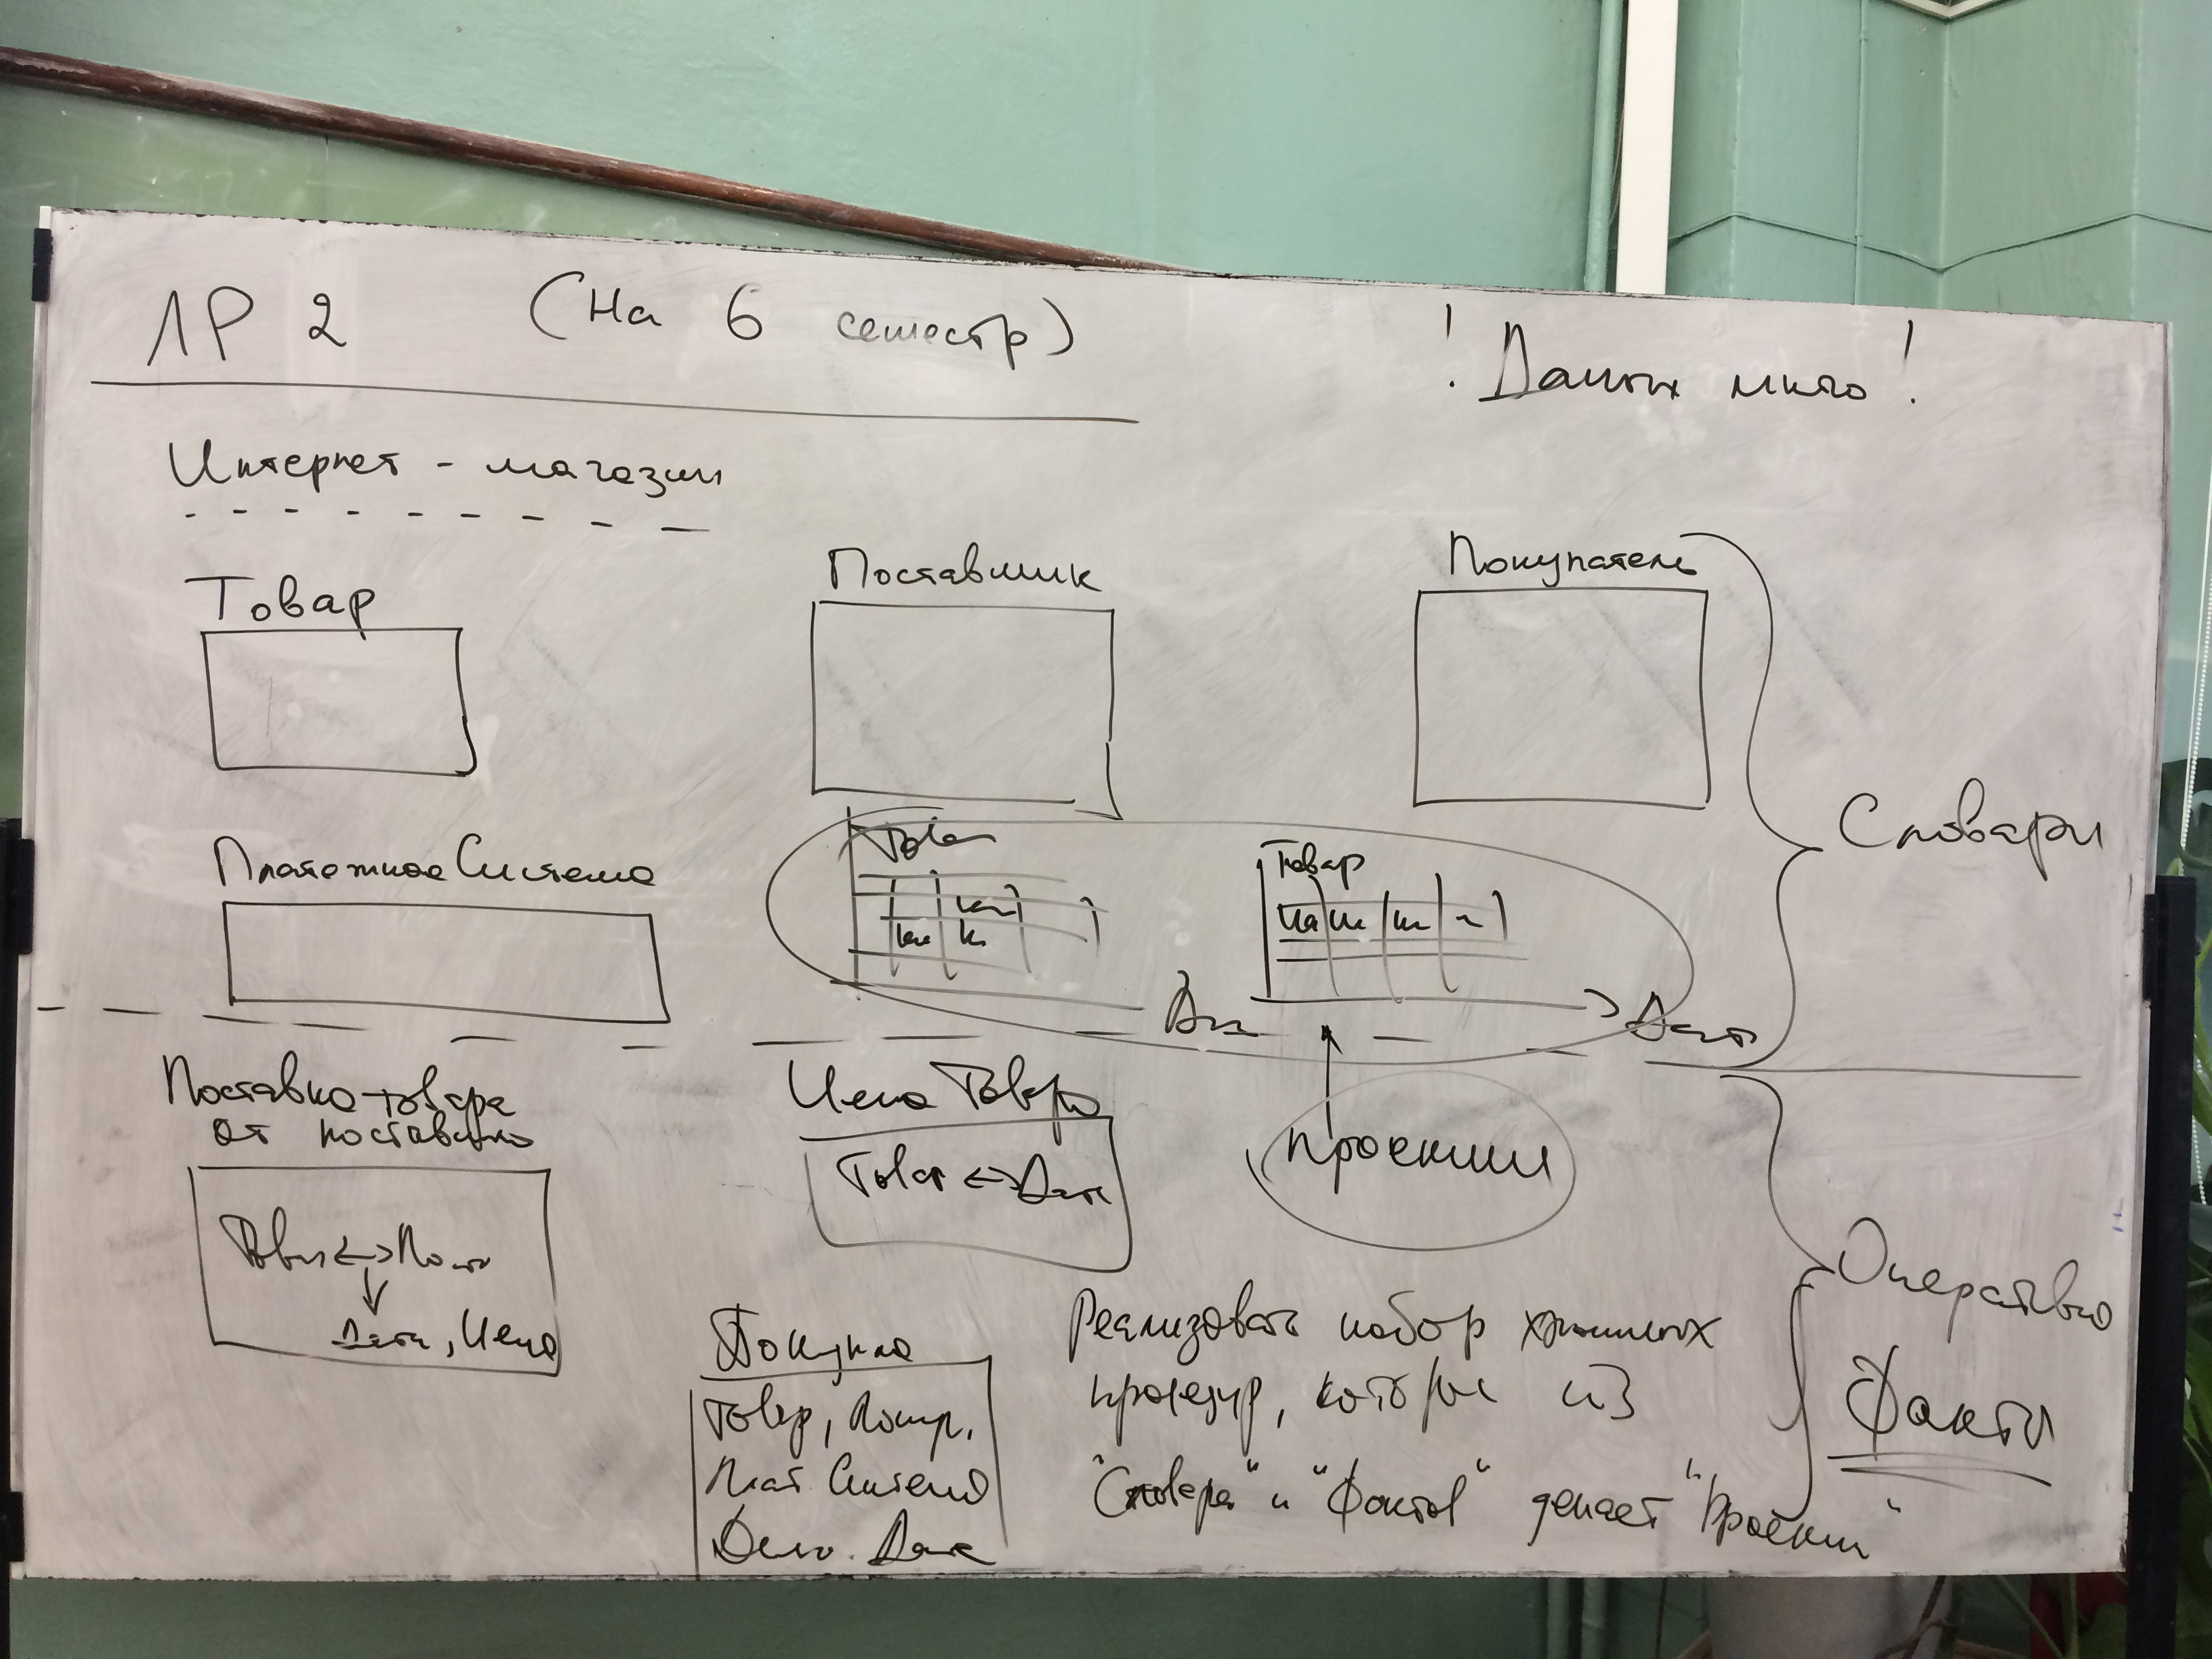 ЛР 2 (На 6 семестр)
! Данных много !
Интернет - магазин
Товар
Поставщик
Покупатель
Словари
Платежная Система
Товар
Товар
Дата
Поставка товара
от поставщика
Товар <-> Пост
Дата, Цена
Цена Товара
Товар <-> Дата
проекции
Оперативно
Факты
Покупка
Товар, Покуп.
Плат Система
Дата
Реализовать набор хранимых
процедур, которые из
"Словаря" и "Фактов" делает "Проекции"